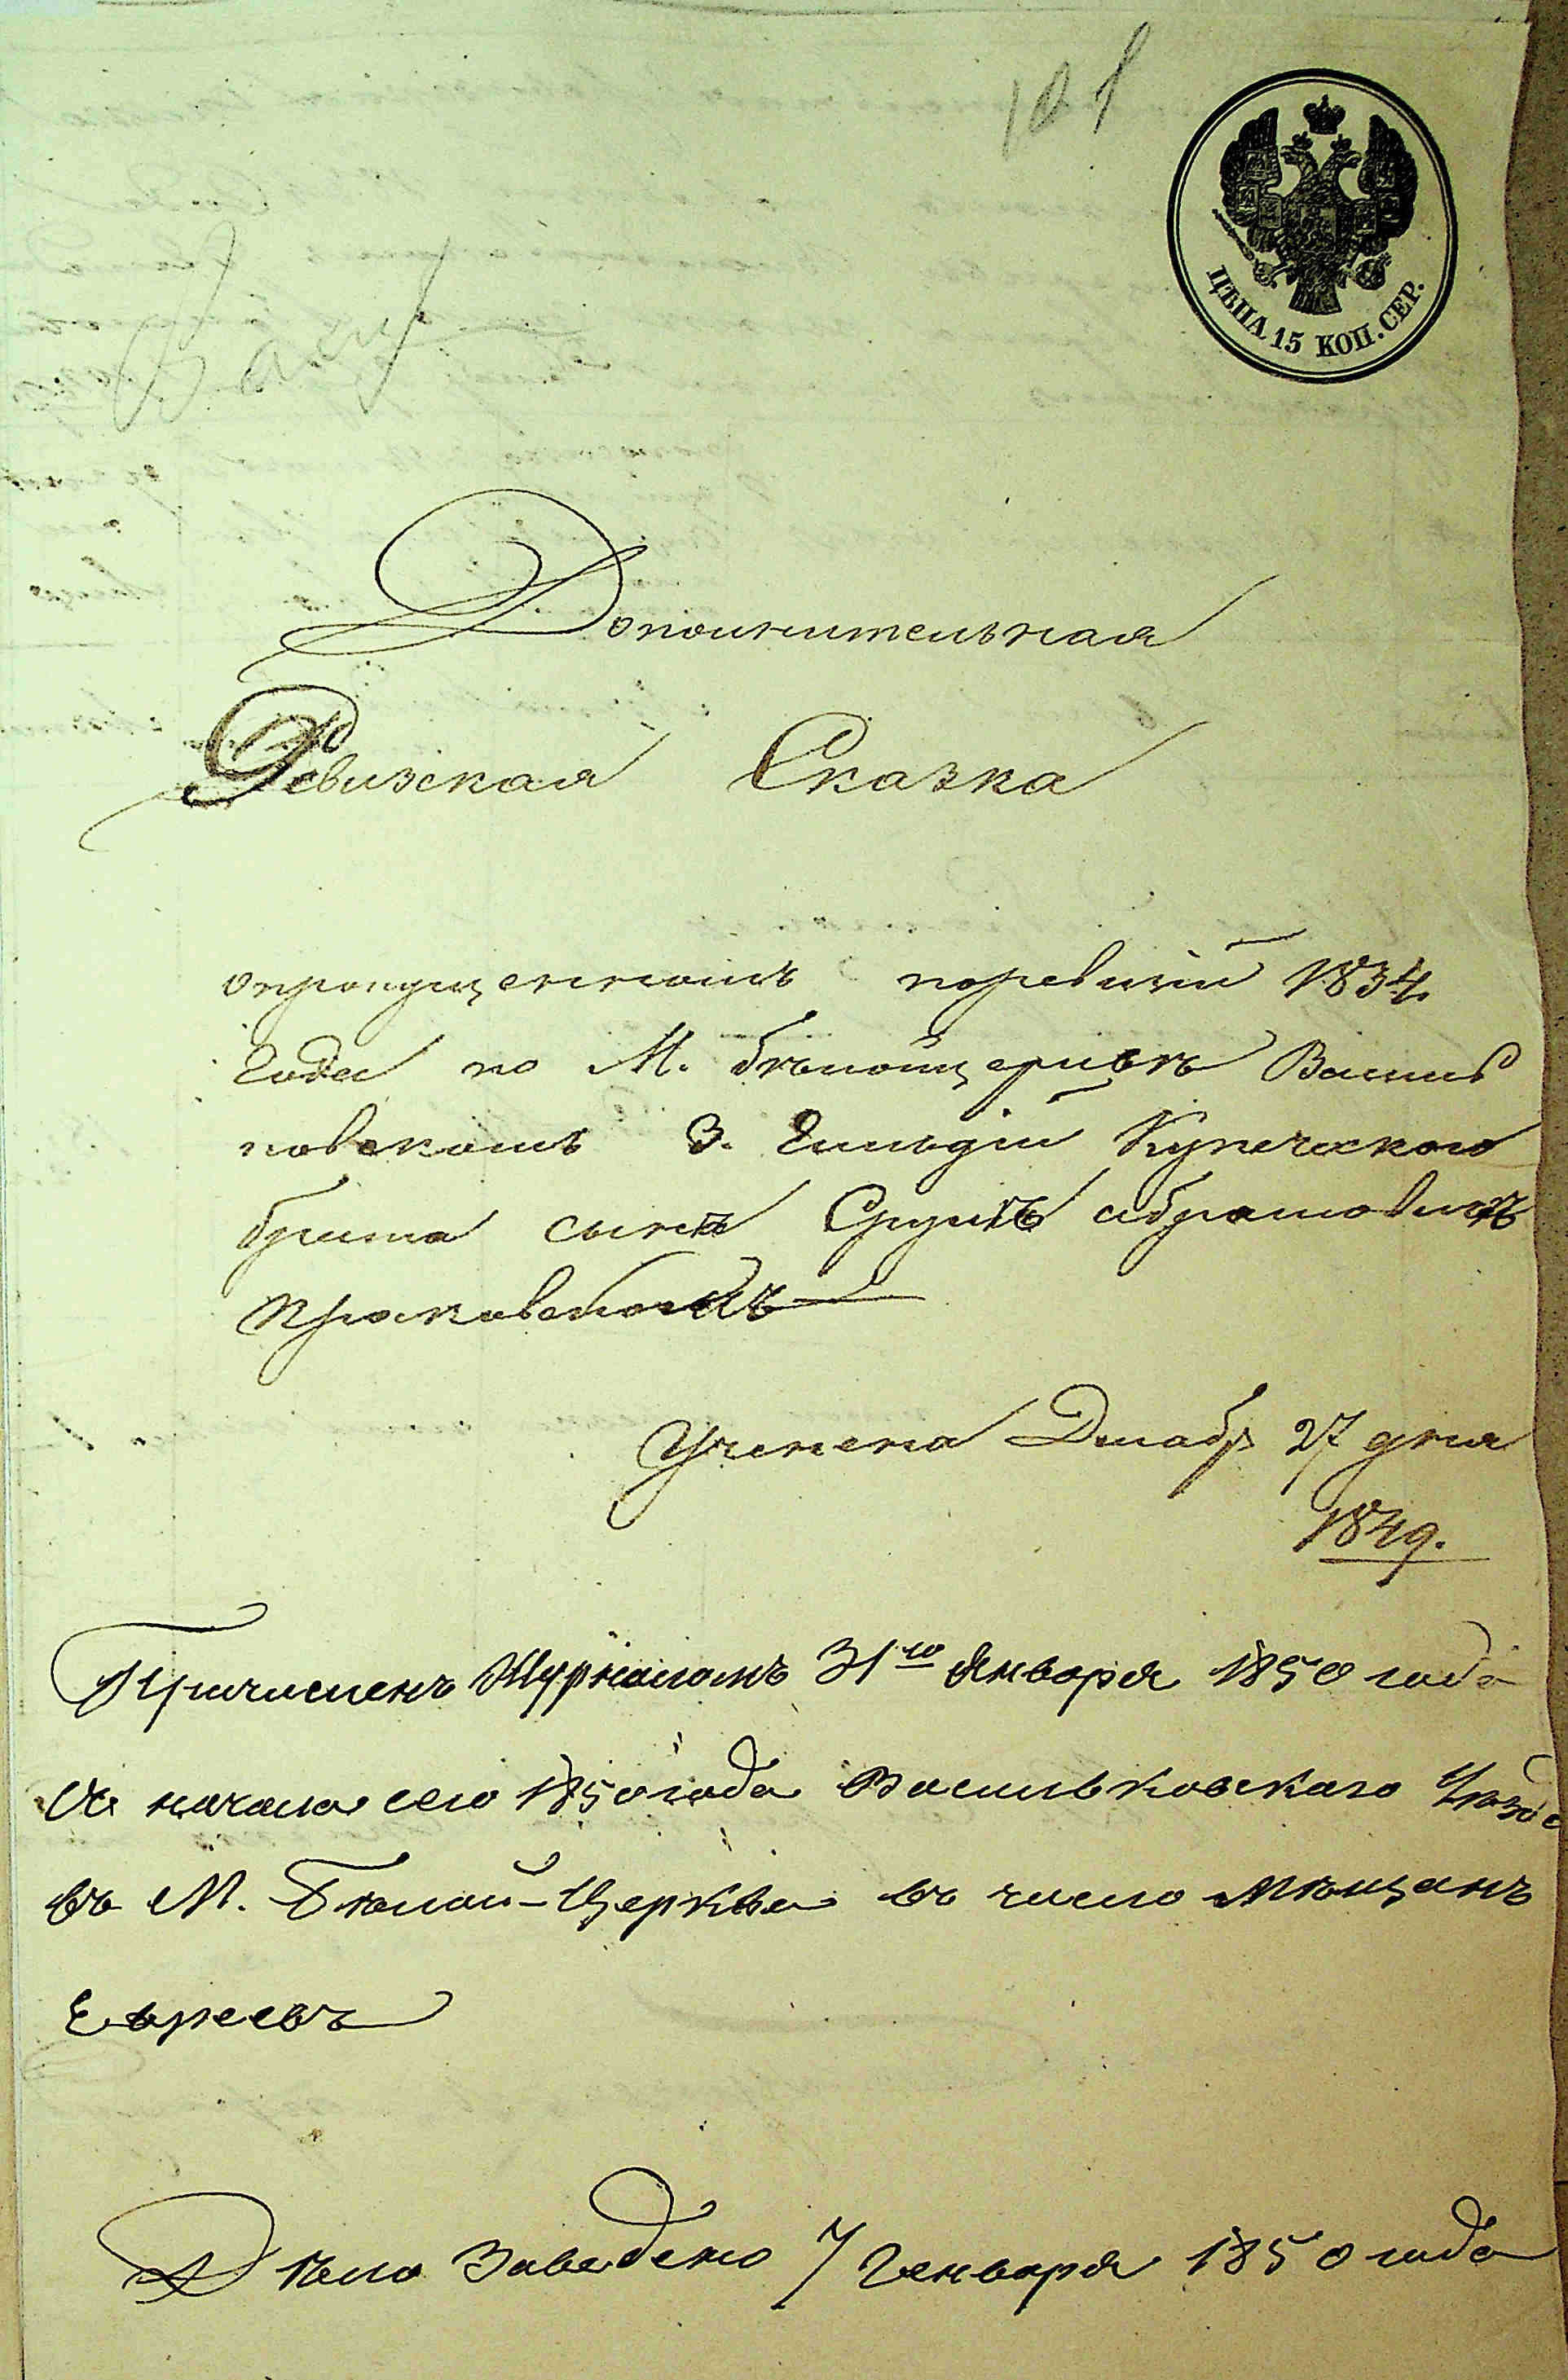 101
ЦѢНА 15 КОП. СЕР.
Дополнительная
Ревизская Сказка
опропущенномъ поревизіи 1834
Года по М. бѣлойцерквѣ Василь
ковскомъ 3. Гильдіи Купеческого
брата сына Срулѣ абрамовичѣ
Учинена Декабр 27 дня
1849.
Причисленъ Журналомъ 31го Января 1850 года
съ начала сего 1850 года Васильковскаго Уѣзда
въ М. Бѣлой-Церкви въ число Мѣщанъ
Евреевъ
Дѣло Заведено 7 Генваря 1850 года